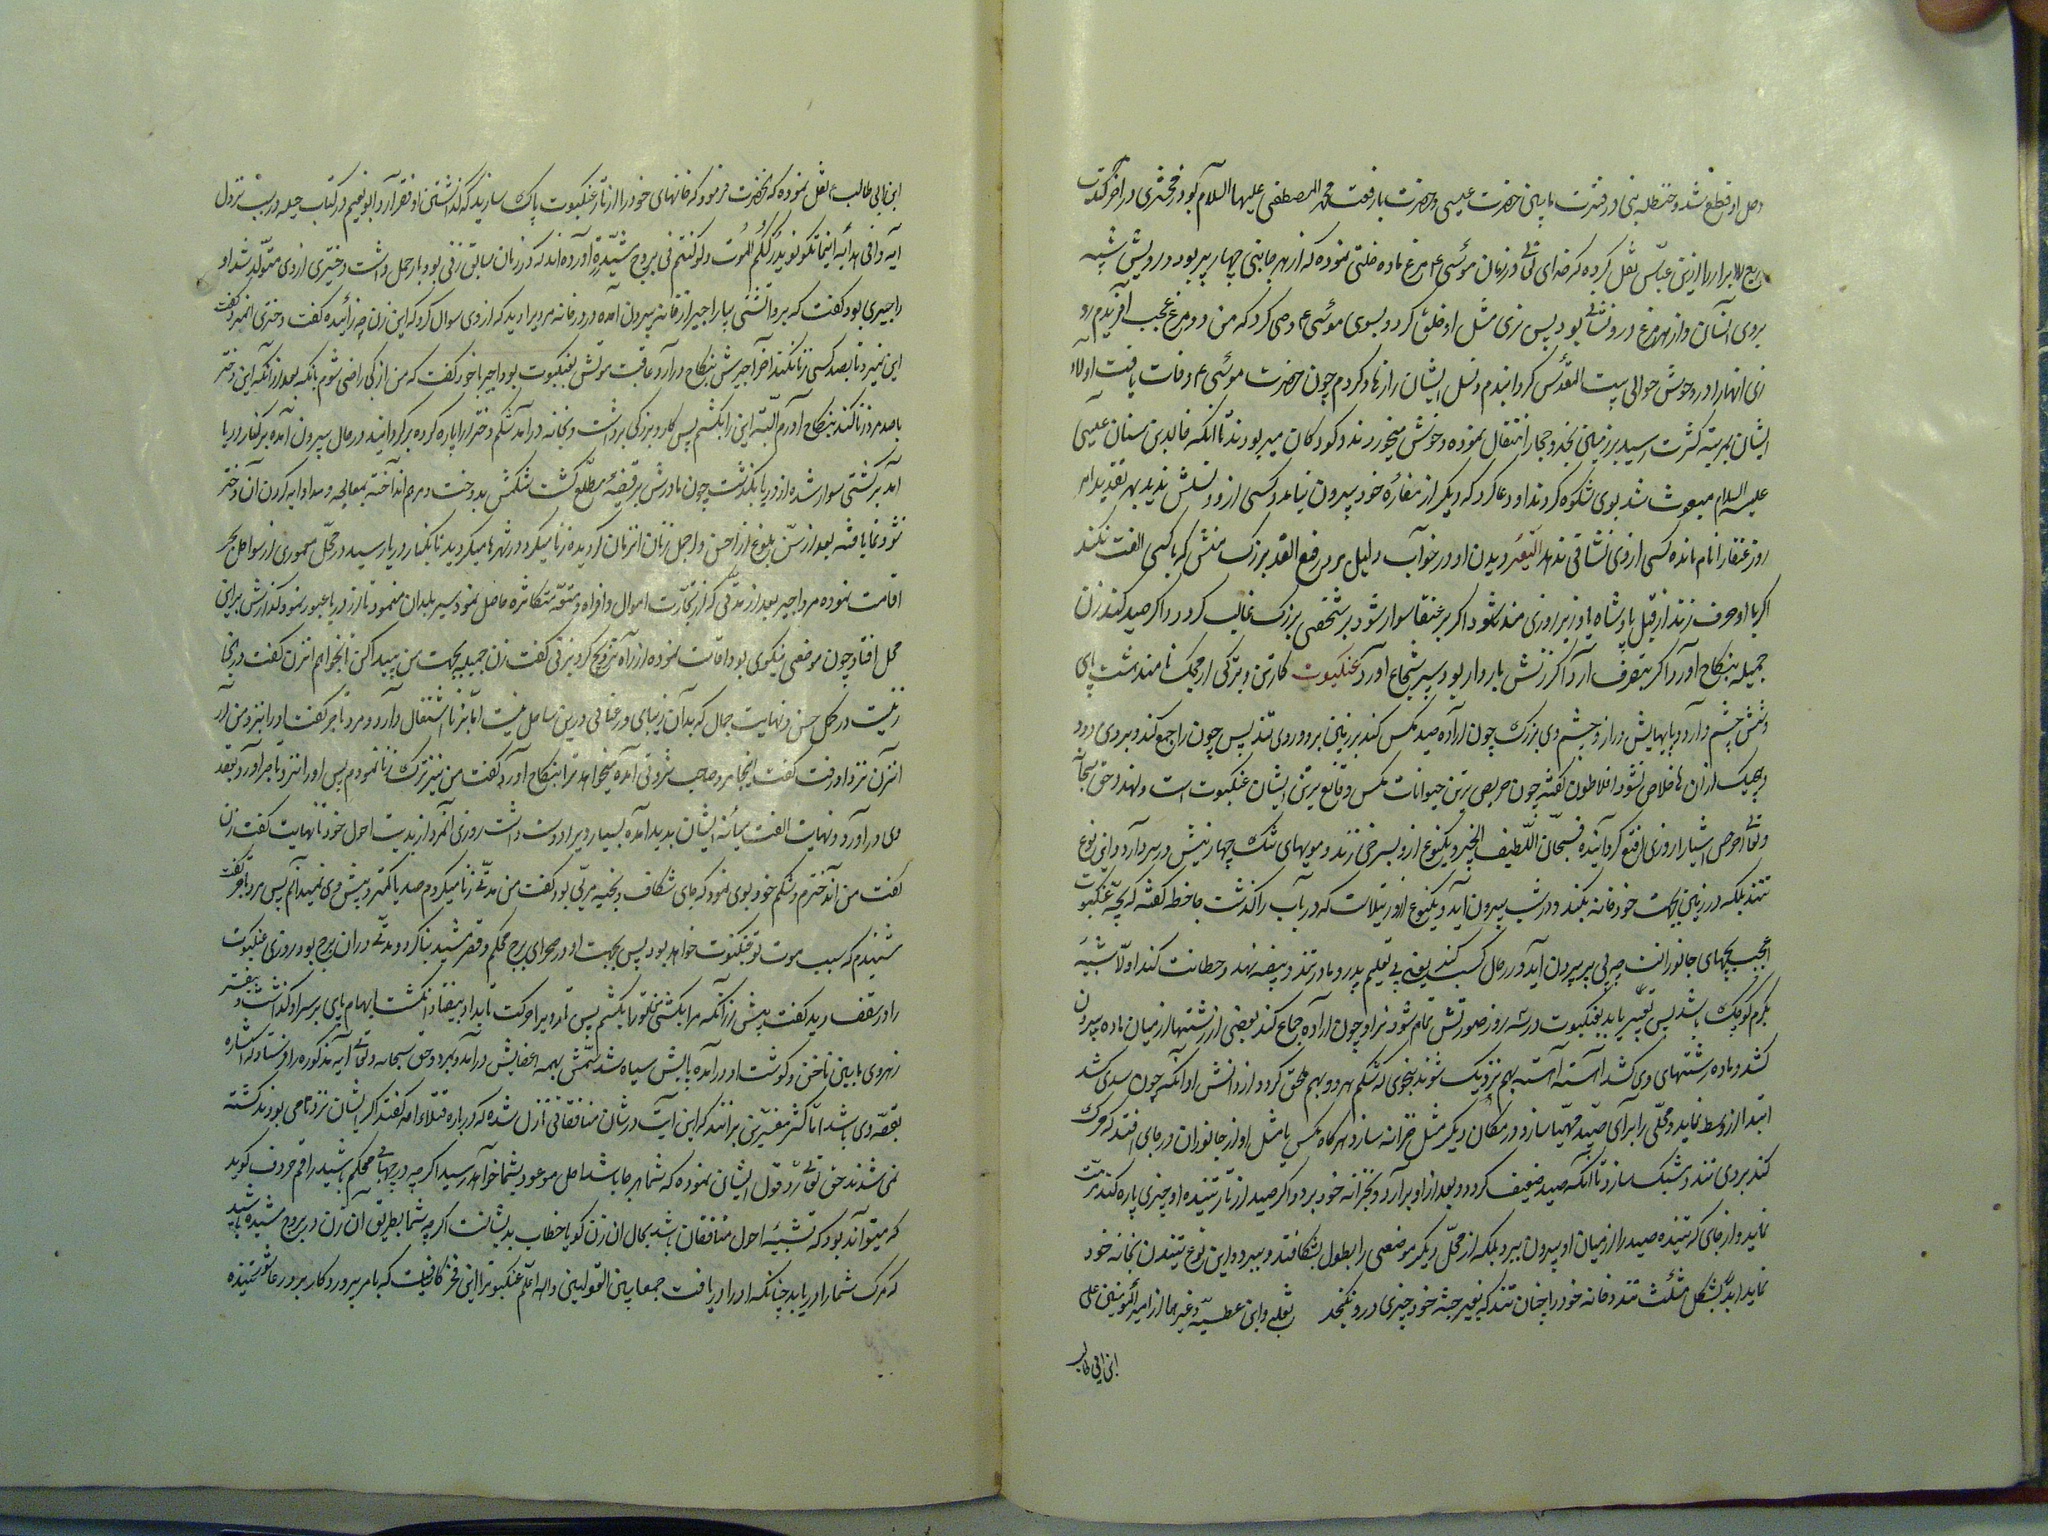 و صل او قطع شد و حنظله نبی در فترت مابین حضرت عیسی و حضرت محمد المصطفی علیهما السلام بود زمخشری در آخر کتاب
ربیع الابرار از ابن عباس نقل کرده که خدای تعالی در زمان موسی ع مرغ ماده خلق نموده که از هر جانبی چهار پر بود و رویش شبیه
بروی انسان و از هر مرغ در و نشانی بود پس نری مثل او خلق کرد و بسوی موسی ع وحی کرد که من دو مرغ عجب آفریدم و
زی انها را در وحوش حوالی بیت المقدس گردانیدم و نسل ایشان را زیاد کردم چون حضرت موسی ع وفات یافت اولاد
ایشان بمرتبه کثرت رسید بر زمین نجد و حجاز انتقال نموده وحوش میخوردند و کودکان میربودند تا آنکه خالد بن سنان عبسی
علیه السلام مبعوث شد بوی شکوه کردند او دعا کرد که دیگر از مغاره خود بیرون نیامد و کسی از و نسلش ندید بهر تقدیر امر
روز عنقا را نام مانده کسی از وی نشانی ندهد التعبیر دیدن او در خواب دلیل بر مرد رفیع القدر بزرگ منش که با کسی الفت نکند
اگر با او حرف زند از قبل پادشاه یا وزیر روزی مند شود و اگر بر عنقا سوار شود بر شخصی بزرگ غالب گردد و اگر صید کند زن
جمیله بنکاح آورد اگر بتصرف آرد اگر زنش باردار بود پسر شجاع آورد عنکبوت کارتن و بترکی ارمجک نامند هشت پای
و شش چشم دارد و پایهایش دراز و چشم وی بزرگ چون اراده صید مگس کند بر زمین برود و روی تند پس چون را جمع کند و بروی رود
و هیچیک از آن ها خلاص نشود افلاطون گفته چون حریص ترین حیوانات مگس و قانع ترین ایشان عنکبوت است و لهذا حق سبحانه
و تعالی احرص اشیا را روزی اقنع گردانیده فسبحان اللطیف الخبیر و یکنوع از و بسرخی زند و مویهای تنک چهار نیش در سر دارد و این نوع
نتند بلکه در زمین بجهت خود خانه بکند و در شب بیرون آید و یکنوع از و رتیلاست که در باب را گذشت جاحظ گفته که بچه عنکبوت
عجیب بچهای جانورانست چه بی پر بیرون آید و در حال کسب کند یعنی بی تعلیم پدر و مادر تند و بیضه نهد و حضانت کند اولا شبیه
بکرم کوچک باشد پس تغییر یابد بعنکبوت در سه روز صورتش تمام شود نر او چون اراده جماع کند بعضی از رشتها از میان ماده بیرون
کشد و ماده رشتهای وی کشد آهسته آهسته بهم نزدیک شوند بنحوی که شکم هر دو بهم ملحق گردد و از دانش او آنکه چون سدی کشد
ابتدا از وسط نماید و محلی را برای صید مهیا سازد و در مکان دیگر مثل خزانه سازد هرگاه مگس یا مثل او از جانوران در جای افتد که حرکت
کند بروی تند و مشبک سازد تا آنکه صید ضعیف گردد و بعد از او برآرد و بخزانه خود برد و اگر صید از تار تنیده او چیزی پاره کند مرمت
نماید و از جای که تنیده صید را از میان او بیرون نبرد بلکه از محل دیگر موضعی را بطول بشکافد و ببرد و این نوع تنیدن بخانه خود
نماید ابدا بشکل مثلث تند و خانه خود را چنان تند که بغیر جثه خود چیزی در و نگنجد ثعلبی و ابن عطیه و غیرهما از امیر المؤمنین علی
ابن ابی طالب
ابن ابی طالب ع نقل نموده که آنحضرت فرمود که خانهای خود را از تار عنکبوت پاک سازید که گذاشتن او فقر آرد و ابو نعیم در کتاب حلیه در سبب نزول
آیه وافی هدایه اینما تکونوا یدرککم الموت ولو کنتم فی بروج مشیدة آورده اند که در زمان سابق زنی بود بار حمل داشت دختری از وی متولد شد او
را اجیری بود گفت که برو آتشی بیار اجیر از خانه بیرون آمده در در خانه مردیرا دید که از وی سوال کرد که این زن چه زائیده گفت دختری آنمرد گفت
این نمیرد تا بصد کس زنا نکند آخر اجیرش بنکاح درآرد و عاقبت موتش بعنکبوت بود اجیر با خود گفت که من از کی راضی شوم بآنکه بعد از آنکه این دختر
با صد مرد زنا کند بنکاح آورم البته این را بکشم پس کارد بزرگی برداشت و بخانه درآمد شکم دختر را پاره کرده برگردانید در حال بیرون آمده بر کنار دریا
آمد بر کشتی سوار شده از دریا بگذشت چون مادرش بر قضیه مطلع گشت شکمش بدوخت و مرهم انداخته بمعالجه و مداوایه کردن آن دختر
نشو و نما یافته بعد از سن بلوغ از احسن و اجمل زنان آنزمان گردیده زنا میکرد و در شهرها میگردید تا بکنار دریا رسید در محل معموری از سواحل بحر
اقامت نموده مرد اجیر بعد از مدتی که از تجارت اموال وافره و متعه متکاثره حاصل نمود سیر بلدان مینمود تا از دریا عبور نمود گذارش بر این
محل افتاد چون موضعی نیکوی بود اقامت نموده اراده تزویج کرد بزنی گفت زن جمیله بجهت من پیدا کن تا بخواهم آنزن گفت در اینجا
زنیست در کمال حسن و نهایت جمال که بدان زیبای و رعنائی در این ساحل نیست اما بزنا اشتغال دارد و مرد تاجر گفت او را نزد من آر
آنزن نزد او رفت گفت اینجا مرد صاحب ثروتی آمده میخواهد ترا بنکاح آورد گفت من نیز ترک زنا نمودم پس او را نزد تاجر آورد بعقد
وی درآورد و نهایت الفت میانه ایشان پدید آمده بسیار ویرا دوست داشت روزی آنمرد از بدایت احوال خود تا نهایت گفت زن
گفت من آندخترم و شکم خود بوی نمود که جای شکاف و بخیه مرئی بود گفت من مدتی زنا میکردم صد یا کمتر و بیش وی نمیدانم پس مرد تاجر گفت
شنیدم که سبب موت تو عنکبوت خواهد بود پس بجهت او در صحرای برج محکم و قصر مشید بنا کرد و مدتی در آن برج بود روزی عنکبوت
را در سقف دید گفت پیش از آنکه مرا بکشی من تو را بکشم پس آمد و ویرا حرکت تا بدو بیفتاد انگشت ابهام پای بر سر او گذاشت و بیفشرد
زهر وی مابین ناخن و گوشت او درآمده پایش سیاه شد سمش بهمه اعضایش درآمد و بمرد و حق سبحانه و تعالی آیه مذکوره را فرستاد که اشاره
بقصه وی باشد اما اکثر مفسرین برانند که این آیت در شان منافقان نازل شده که درباره قتلاء احد گفتند اگر ایشان نزد ما می بودند کشته
نمی شدند حق تعالی رد قول ایشان نموده که شما هر جا باشید اجل موعود بشما خواهد رسید اگر چه در جهای محکم باشید راقم حروف گوید
که میتواند بود که تشبیه احوال منافقان باشد بحال آن زن گویا خطاب بدیشانست اگر چه شما بطریق آن زن در بروج مشیده باشید
که مرگ شما را دریابد چنانکه او را دریافت جمعا بین القولین والله اعلم عنکبوت را این فخر کافیست که بامر پروردگار بر در غار ثور تنیده